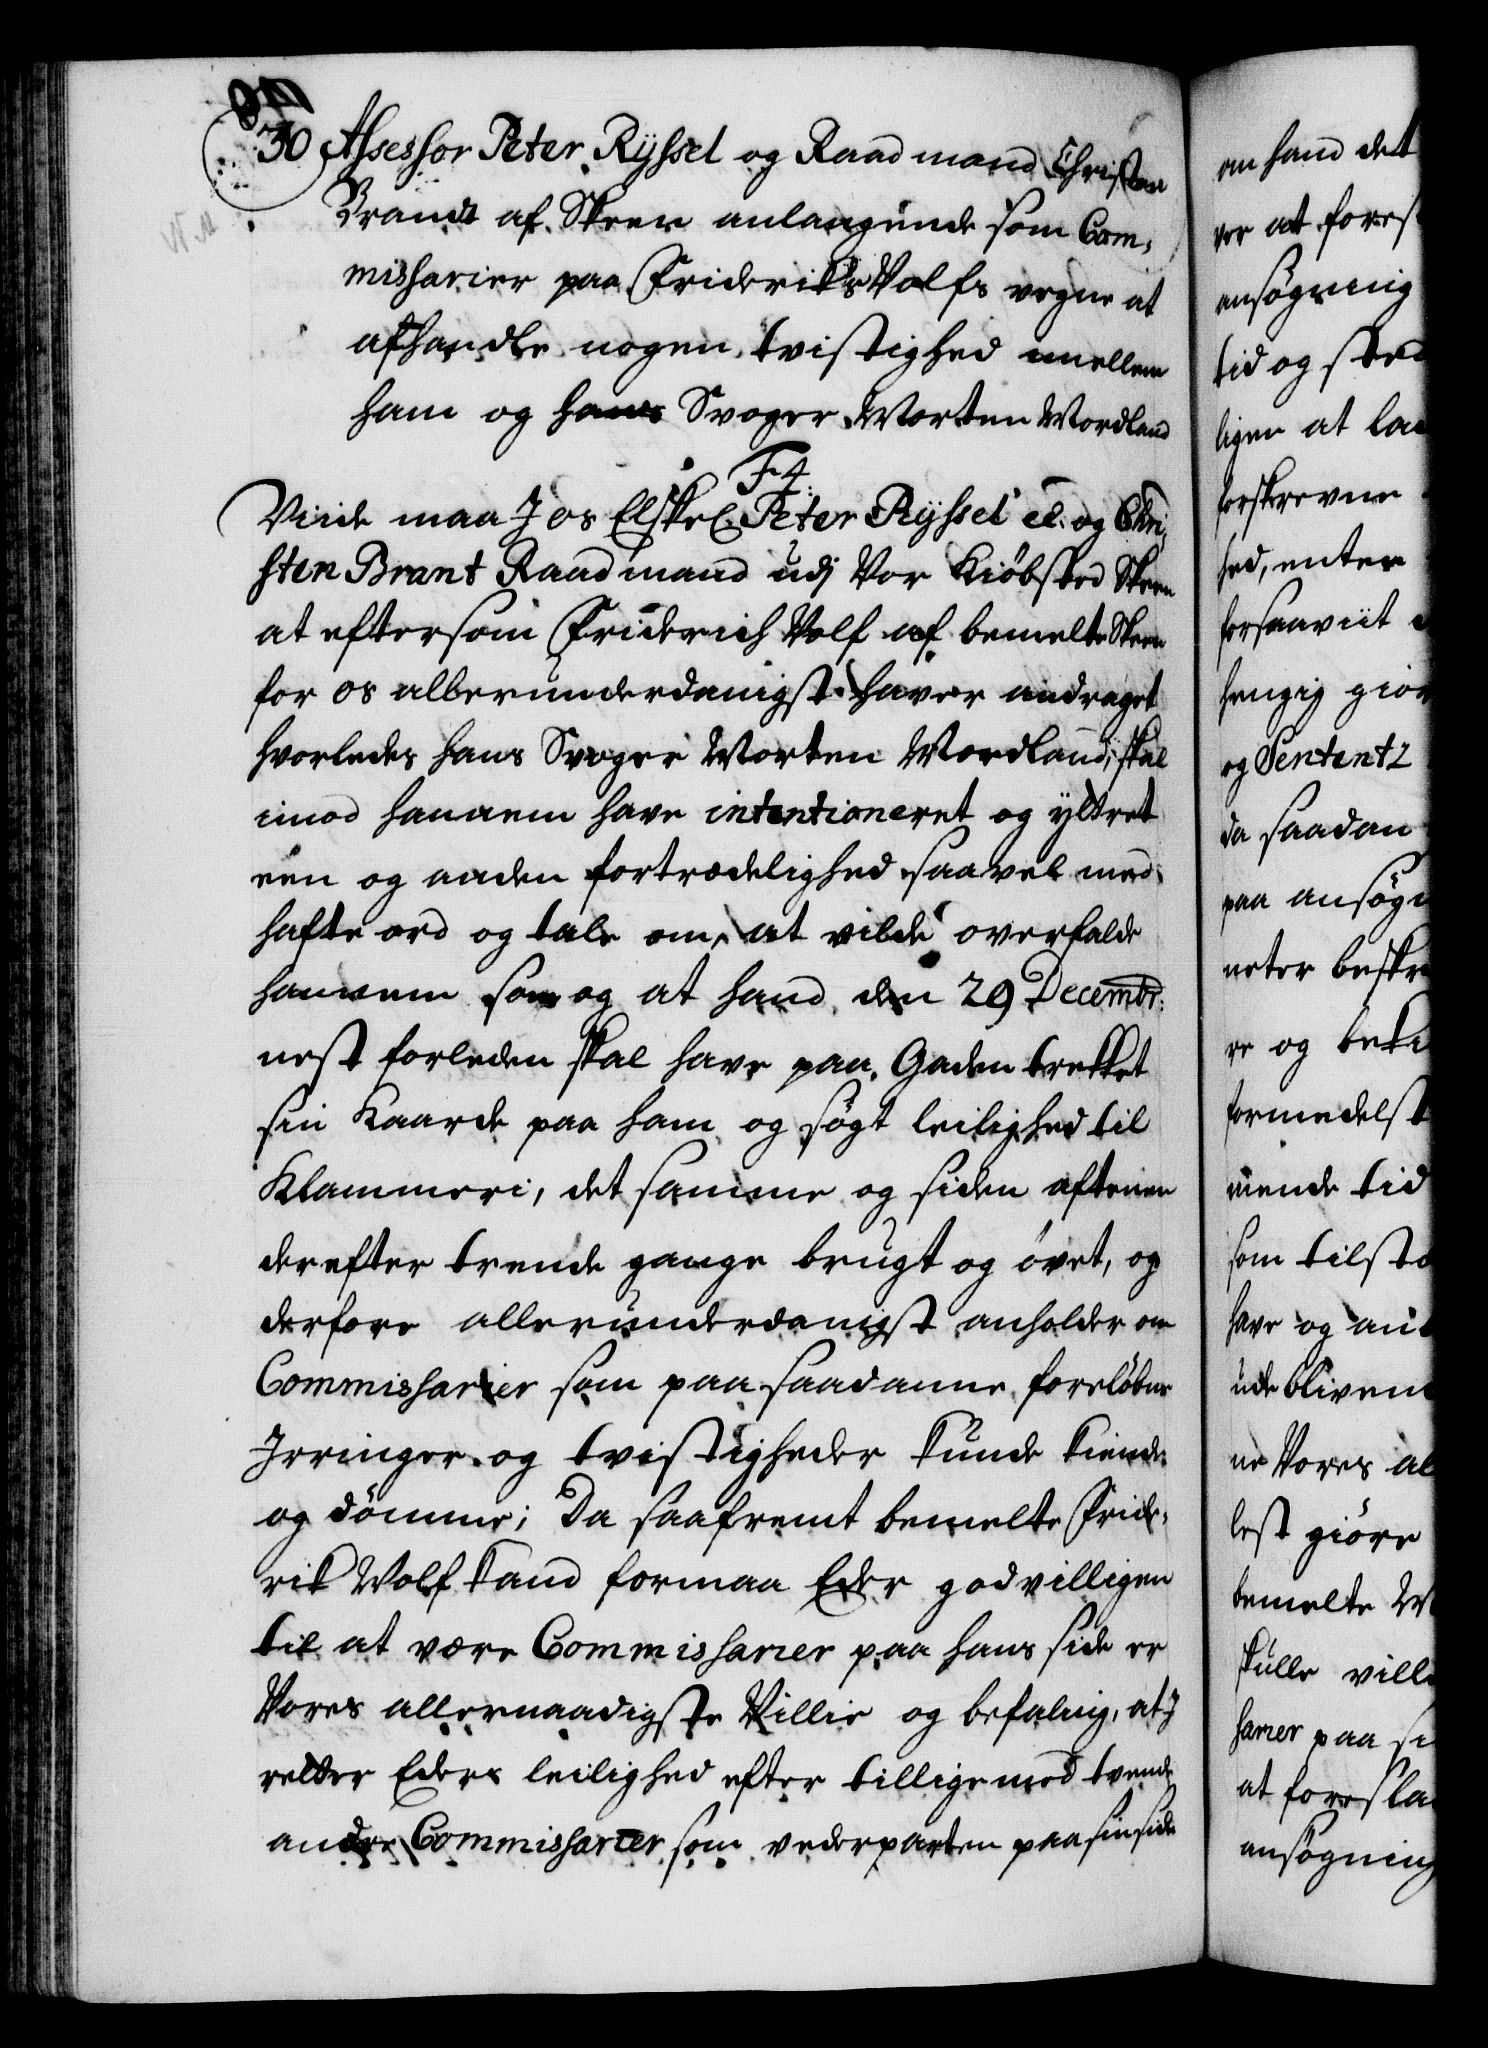 30 Assessor Peter Ryssel og Raadmand Christen
Brandt af Skeen anlangende som Com,
missarier paa Frideriks Volfs vegne at
afhandle nogen tvistighed imellem
ham og hans Svoger Morten Wordland
F4.
Viide maa I os Elskel. Peter Ryssel etc. og Chri,
sten Brant Raadmand udj Vor Kiöbsted Skeen
at eftersom Friderich Volf af bemelte Skeen
for os allerunderdanigst haver andraget
hvorledes hans Svoger Morten Wordland, skal
imod hannem have intentioneret og yttret
een og anden fortrædelighed saavel med
hafte ord og tale om, at vilde overfalde
hannem som og at hand den 29 Decembr:
nest forleden skal have paa Gaden trekket
sin Kaarde paa ham og søgt leilighed til
Klammeri, det samme og siden aftenen
derefter trende gange brugt og övet, og
derfore allerunderdanigst anholder om
Commissarier som paa saadanne foreløbne
Irringer og tvistigheder kunde kiende
og dömme; Da saafremt bemelte Fride,
rik Wolf kand formaa Eder godvilligen
til at være Commissarier paa hans side er
Vores allernaadigste Villie og befaling, at I
retter Eders leilighed efter tillige med tvende
andre Commissarier som vederparten paa sin side
om hand det
ver at fores
ansøgning
tid og sted
ligen at lad
forskrevne
hed, enten
forsaaviit
hengig giør
og Sententz
da saadan
paa ansøgn
neter beskre
re og beki
formedelst
mende tid
som tilsto
have og an
udeblivend
ne Vores al
lest giöre
bemelte W
skulle ville
sarier paa si
at foresla
ansøgning